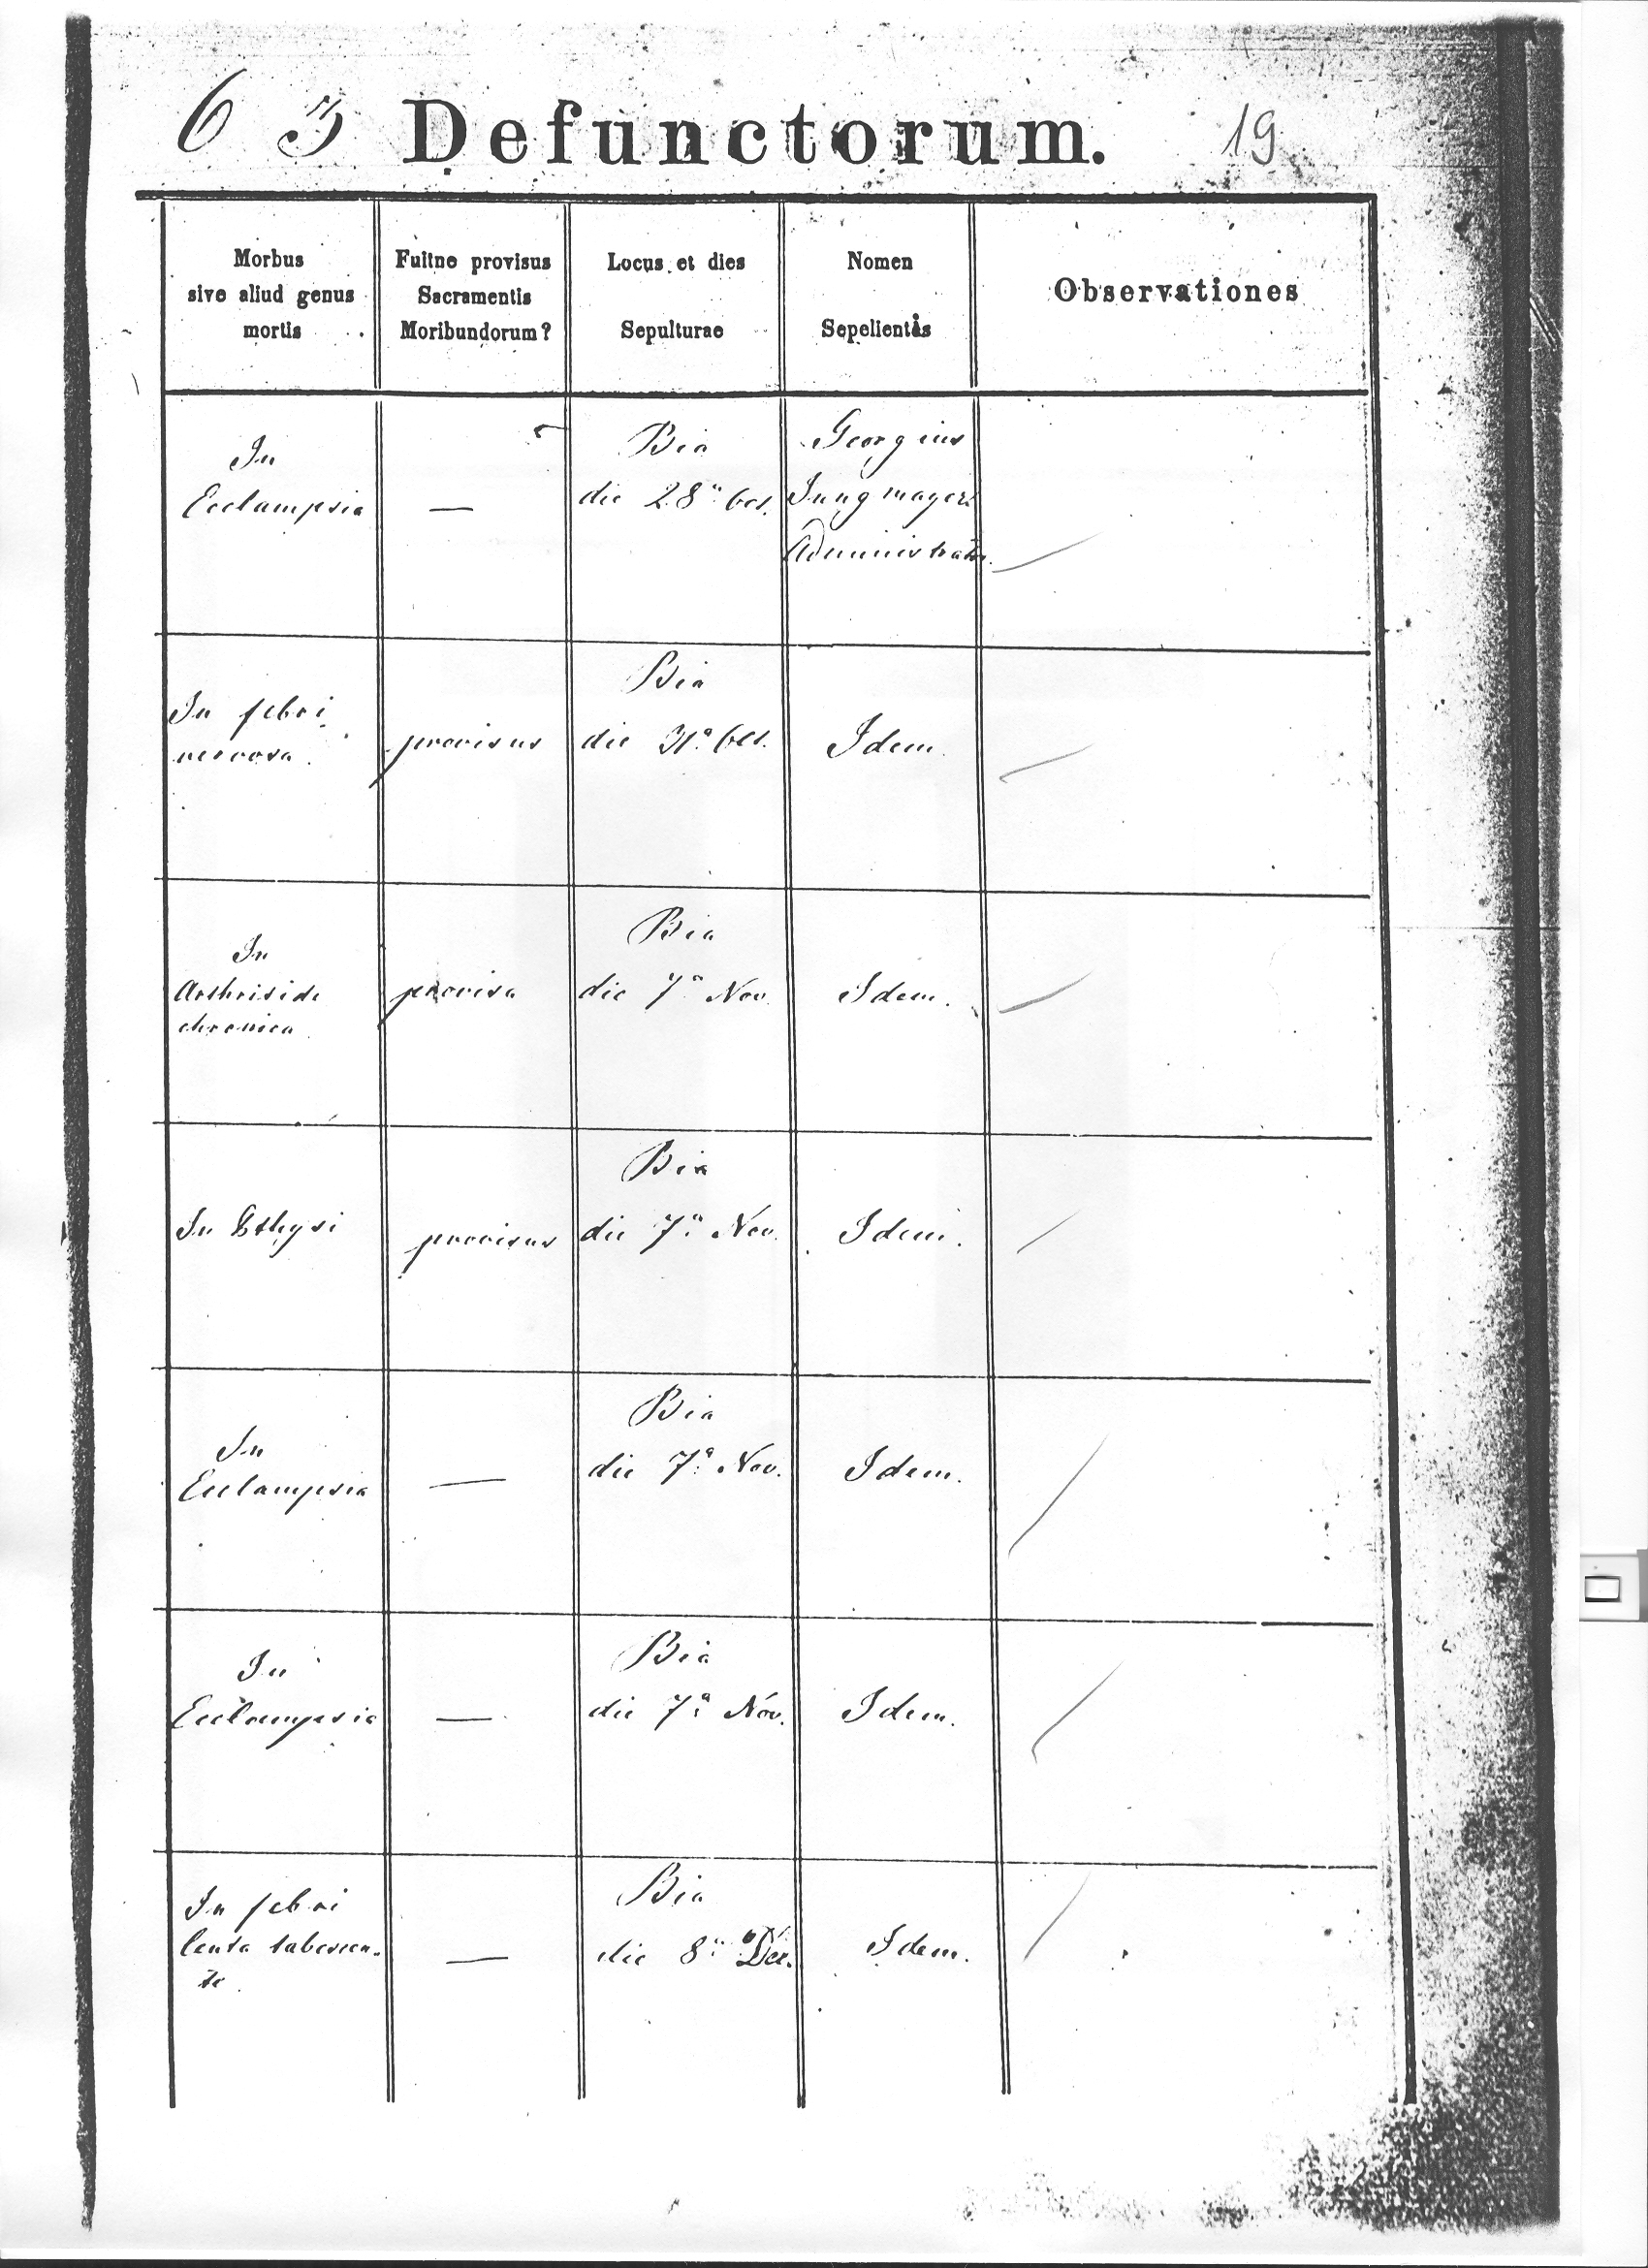 6 3 Defunctorum. 19
Morbus
sive aliud genus
mortis
Fuitne provisus
Sacramentis
Moribundorum?
Locus et dies
Sepulturae
Nomen
Sepelientis
Observationes
In
Ecclampsia
—
Bia
die 28ª Oct.
Georgius
Jungmayer
Administrator.
In febri
nervosa
provisus
Bia
die 31ª Oct.
Idem.
In
Arthritide
chronica
provisa
Bia
die 7ª Nov.
Idem.
In
provisus
Bia
die 7ª Nov.
Idem.
In
Ecclampsia
—
Bia
die 7ª Nov.
Idem.
In
Ecclampsia
—
Bia
die 7ª Nov.
Idem.
In febri
lenta tabescen-
te.
—
Bia
die 8ª Dec.
Idem.